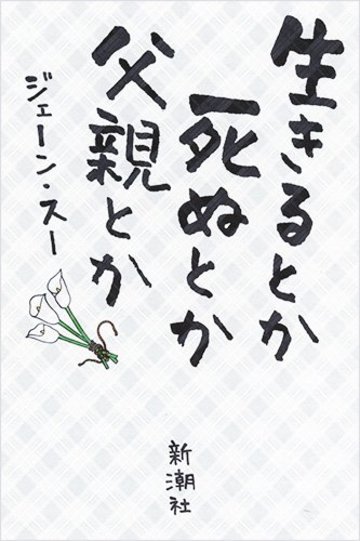 生きるとか
死ぬとか
父親とか
ジェーン・スー
新潮社